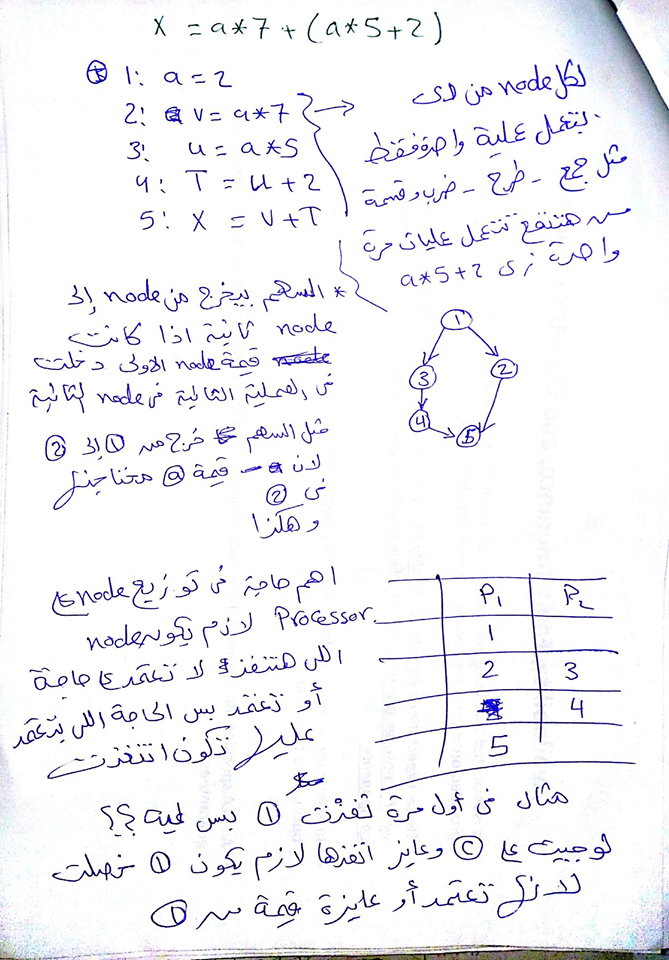 X = a*7 + (a*5+2)
1: a = 2
2: v = a*7
3: u = a*5
4: T = u+2
5: X = v+T
لكل node من دى
بتعمل عملية واحدة فقط
مثل جمع - طرح - ضرب وقسمة
مس هتنفع تتعمل عمليات مرة
واحدة زى a*5+2
* السهم بيخرج من node إلى
node ثانية اذا كانت
قيمة node الاولى دخلت
فى العملية التالية فى node الثانية
مثل السهم خرج من ① إلى ②
لان قيمة ⓐ محتاجنها
فى ②
وهكذا
1
3 2
4 5
اهم حاجة فى توزيع node ع
Processor لازم يكون node
اللى هتنفذ لا تعتمد ع حاجة
أو تعتمد بس الحاجة اللى بتعتمد
عليها تكون اتنفذت
P1 P2
1
2 3
4
5
مثال فى أول مرة نفذت ① بس ليه ؟؟
لو جيت على ② وعايز اتفذها لازم يكون ① خصلت
لانها تعتمد أو عايزة قيمة من ①